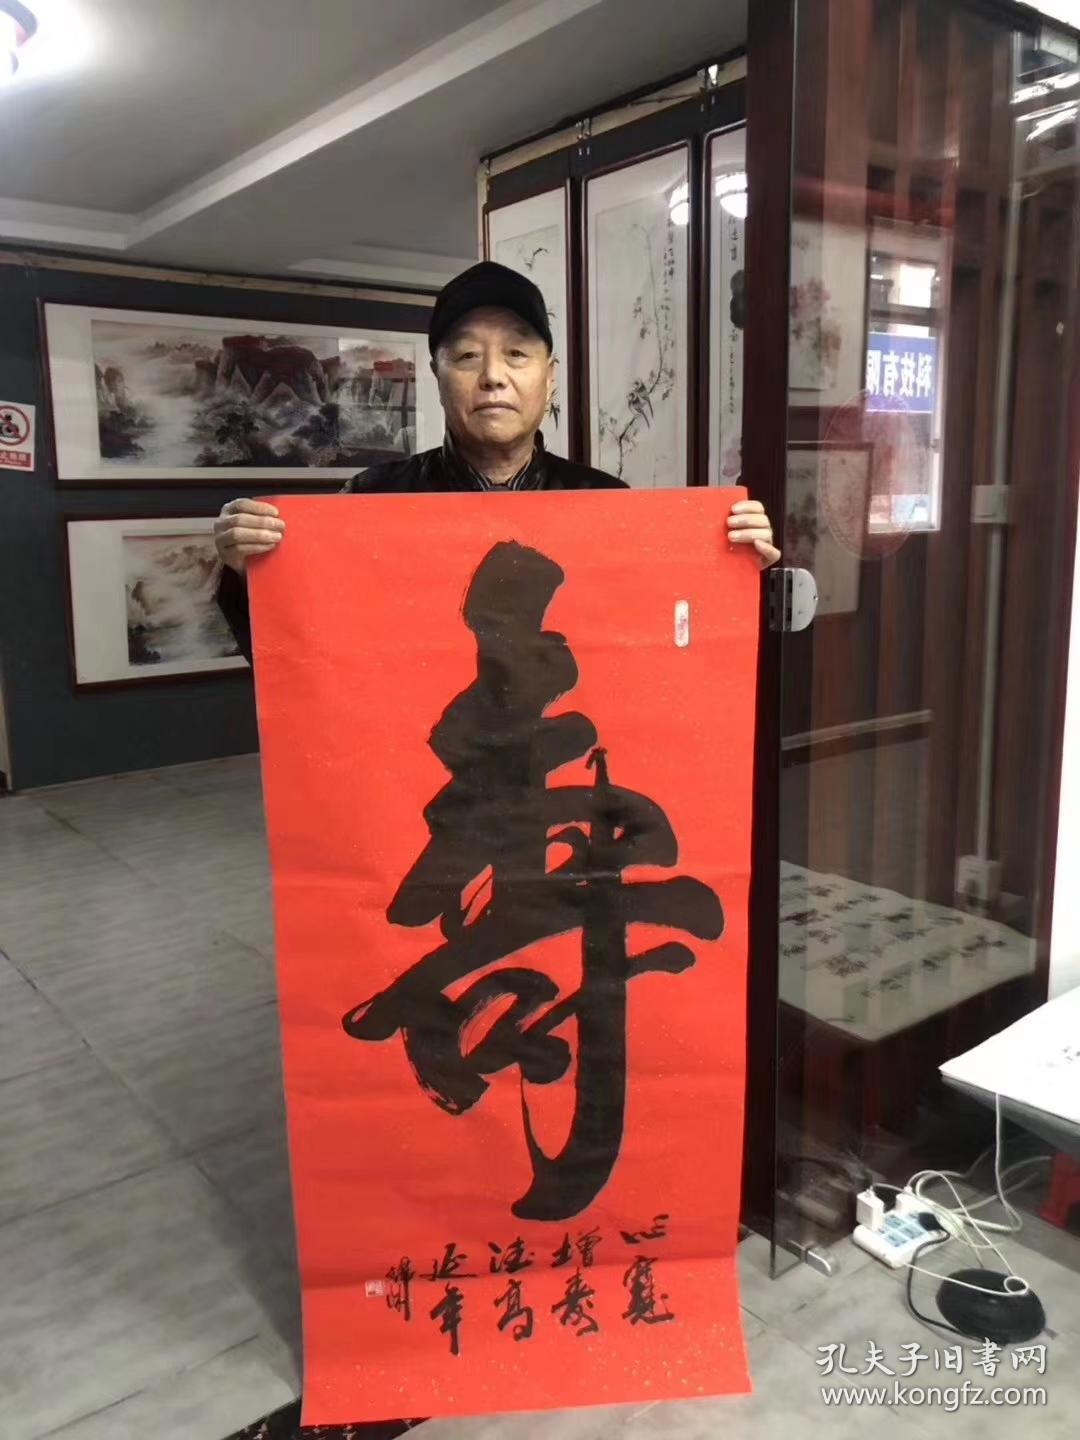 寿
心宽
增寿
德高
延年
科技有限
孔夫子旧書网
www.kongfz.com